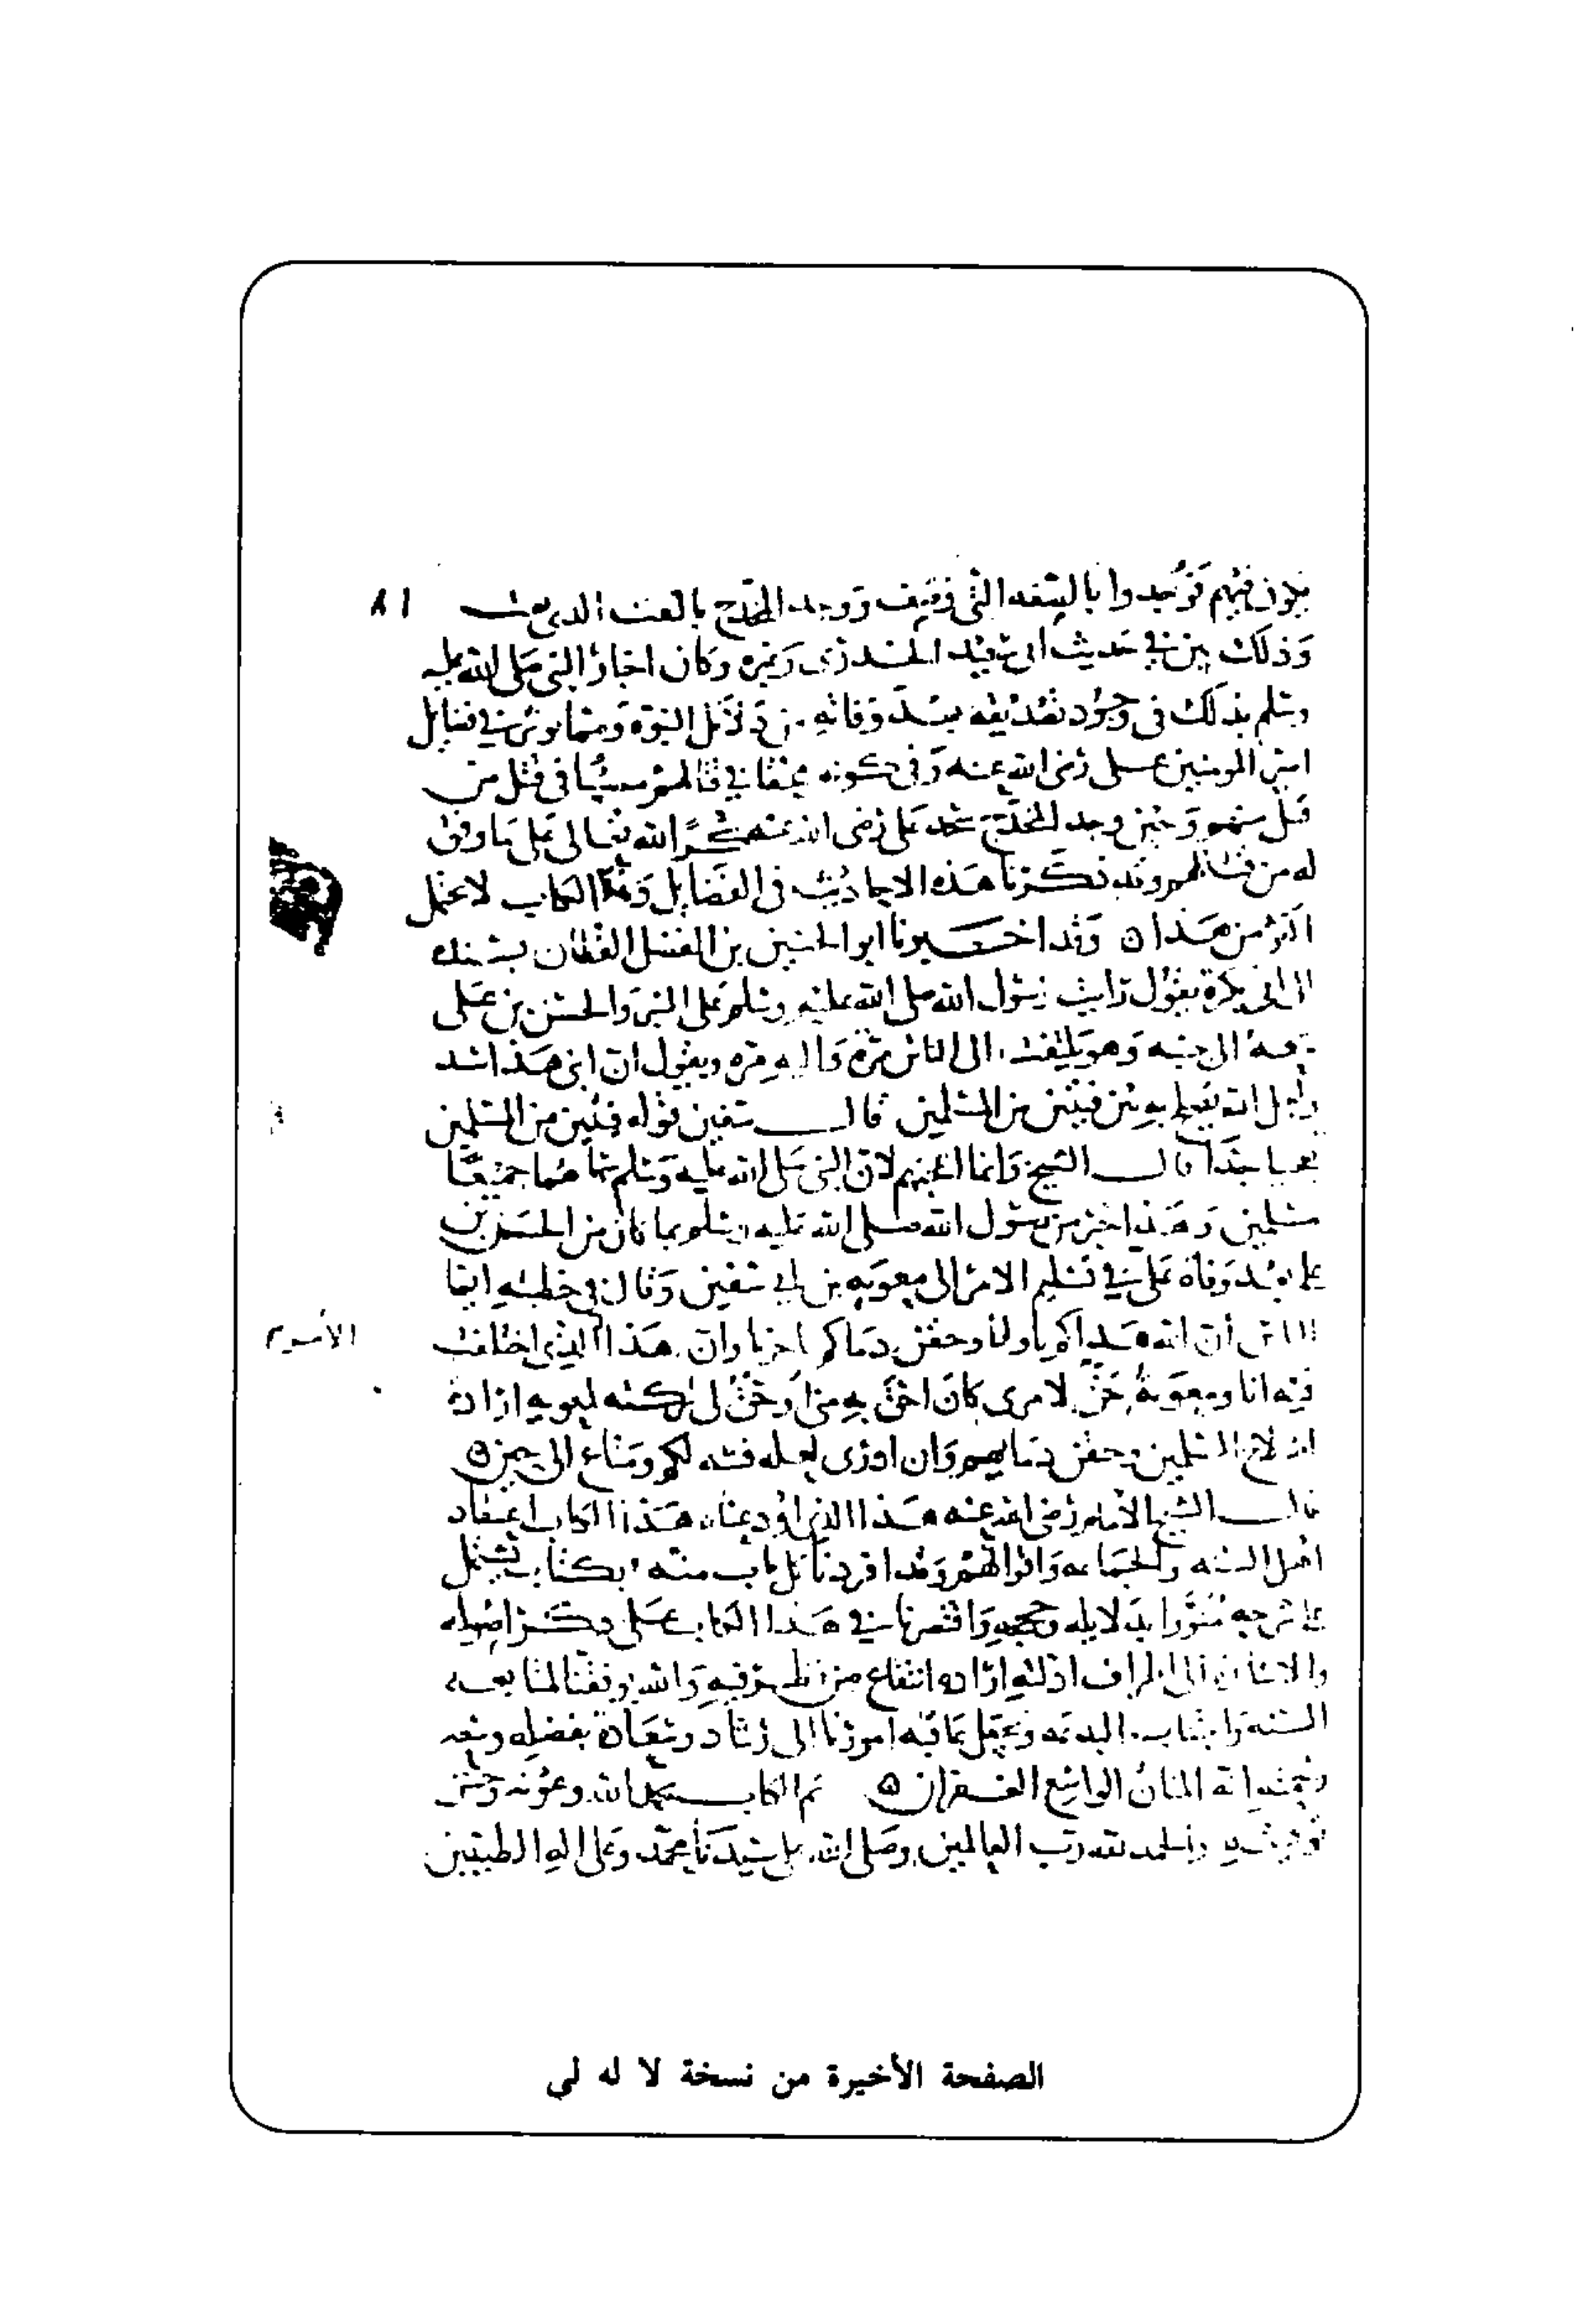 يكون فيهم فوجدوا بالصفة التي وصف ووجد المخدج بالنعت الذي نعت ٨١
وذلك بين في حديث ابي سعيد الخدري وغيره وكان اخبار النبي صلى الله عليه
وسلم بذلك في وجود تصديقه بعد وفاته من دلائل النبوة ومما يؤثر في فضايل
امير المومنين علي رضي الله عنه وفي كونه محقا في قتالهم مصيبا في قتل من
قتل منهم وحين وجد المخدج سجد علي رضي الله عنه شكرا لله تعالى على ما وفق
له من قتالهم وقد ذكرنا هذه الاحاديث في الفضايل وهذا الكتاب لا يحتمل
اكثر من هذا ٥ وقد اخبرنا ابو الحسين بن الفضل القطان
ابي بكرة يقول رايت رسول الله صلى الله عليه وسلم على المنبر والحسن بن علي
معه الى جنبه وهو يلتفت الى الناس مرة واليه مرة ويقول ان ابني هذا سيد
ولعل الله يصلح به بين فئتين من المسلمين قال سفين قوله فئتين من المسلمين
يعجبنا جدا قال الشيخ وانما اعجبهم لان النبي صلى الله عليه وسلم سماهما جميعا
مسلمين وهذا خبر من رسول الله صلى الله عليه وسلم بما كان من الحسن بن
علي بعد وفاة علي في تسليم الامر الى معوية بن ابي سفين وقال في خطبته ايها
الناس ان الله هداكم باولنا وحقن دماكم باخرنا وان هذا الامر الذي اختلفت
فيه انا ومعوية حق لامرى كان احق به مني او حق لي تركته لمعوية ارادة
اصلاح المسلمين وحقن دمايهم وان ادري لعله فتنه لكم ومتاع الى حين ٥
قال الشيخ الامام رضي الله عنه هذا الذي اودعناه هذا الكتاب اعتقاد
اهل السنه والجماعه واقوالهم وقد افردنا كل باب منه بكتاب يشتمل
على شرحه منورا بدلايله وحججه واقتصرنا في هذا الكتاب على ذكر اصوله
والاشارة الى اطراف ادلته ارادة انتفاع من نظر فيه والله يوفقنا لمتابعه
السنه واجتناب البدعه ويجعل عاقبه امورنا الى رشاد وسعادة بفضله وسعه
رحمته انه المنان الواسع الغفران ٥ تم الكتاب بحمد الله وعونه وحسن
توفيقه والحمد لله رب العالمين وصلى الله على سيدنا محمد وعلى اله الطيبين
الصفحة الأخيرة من نسخة لا له لي